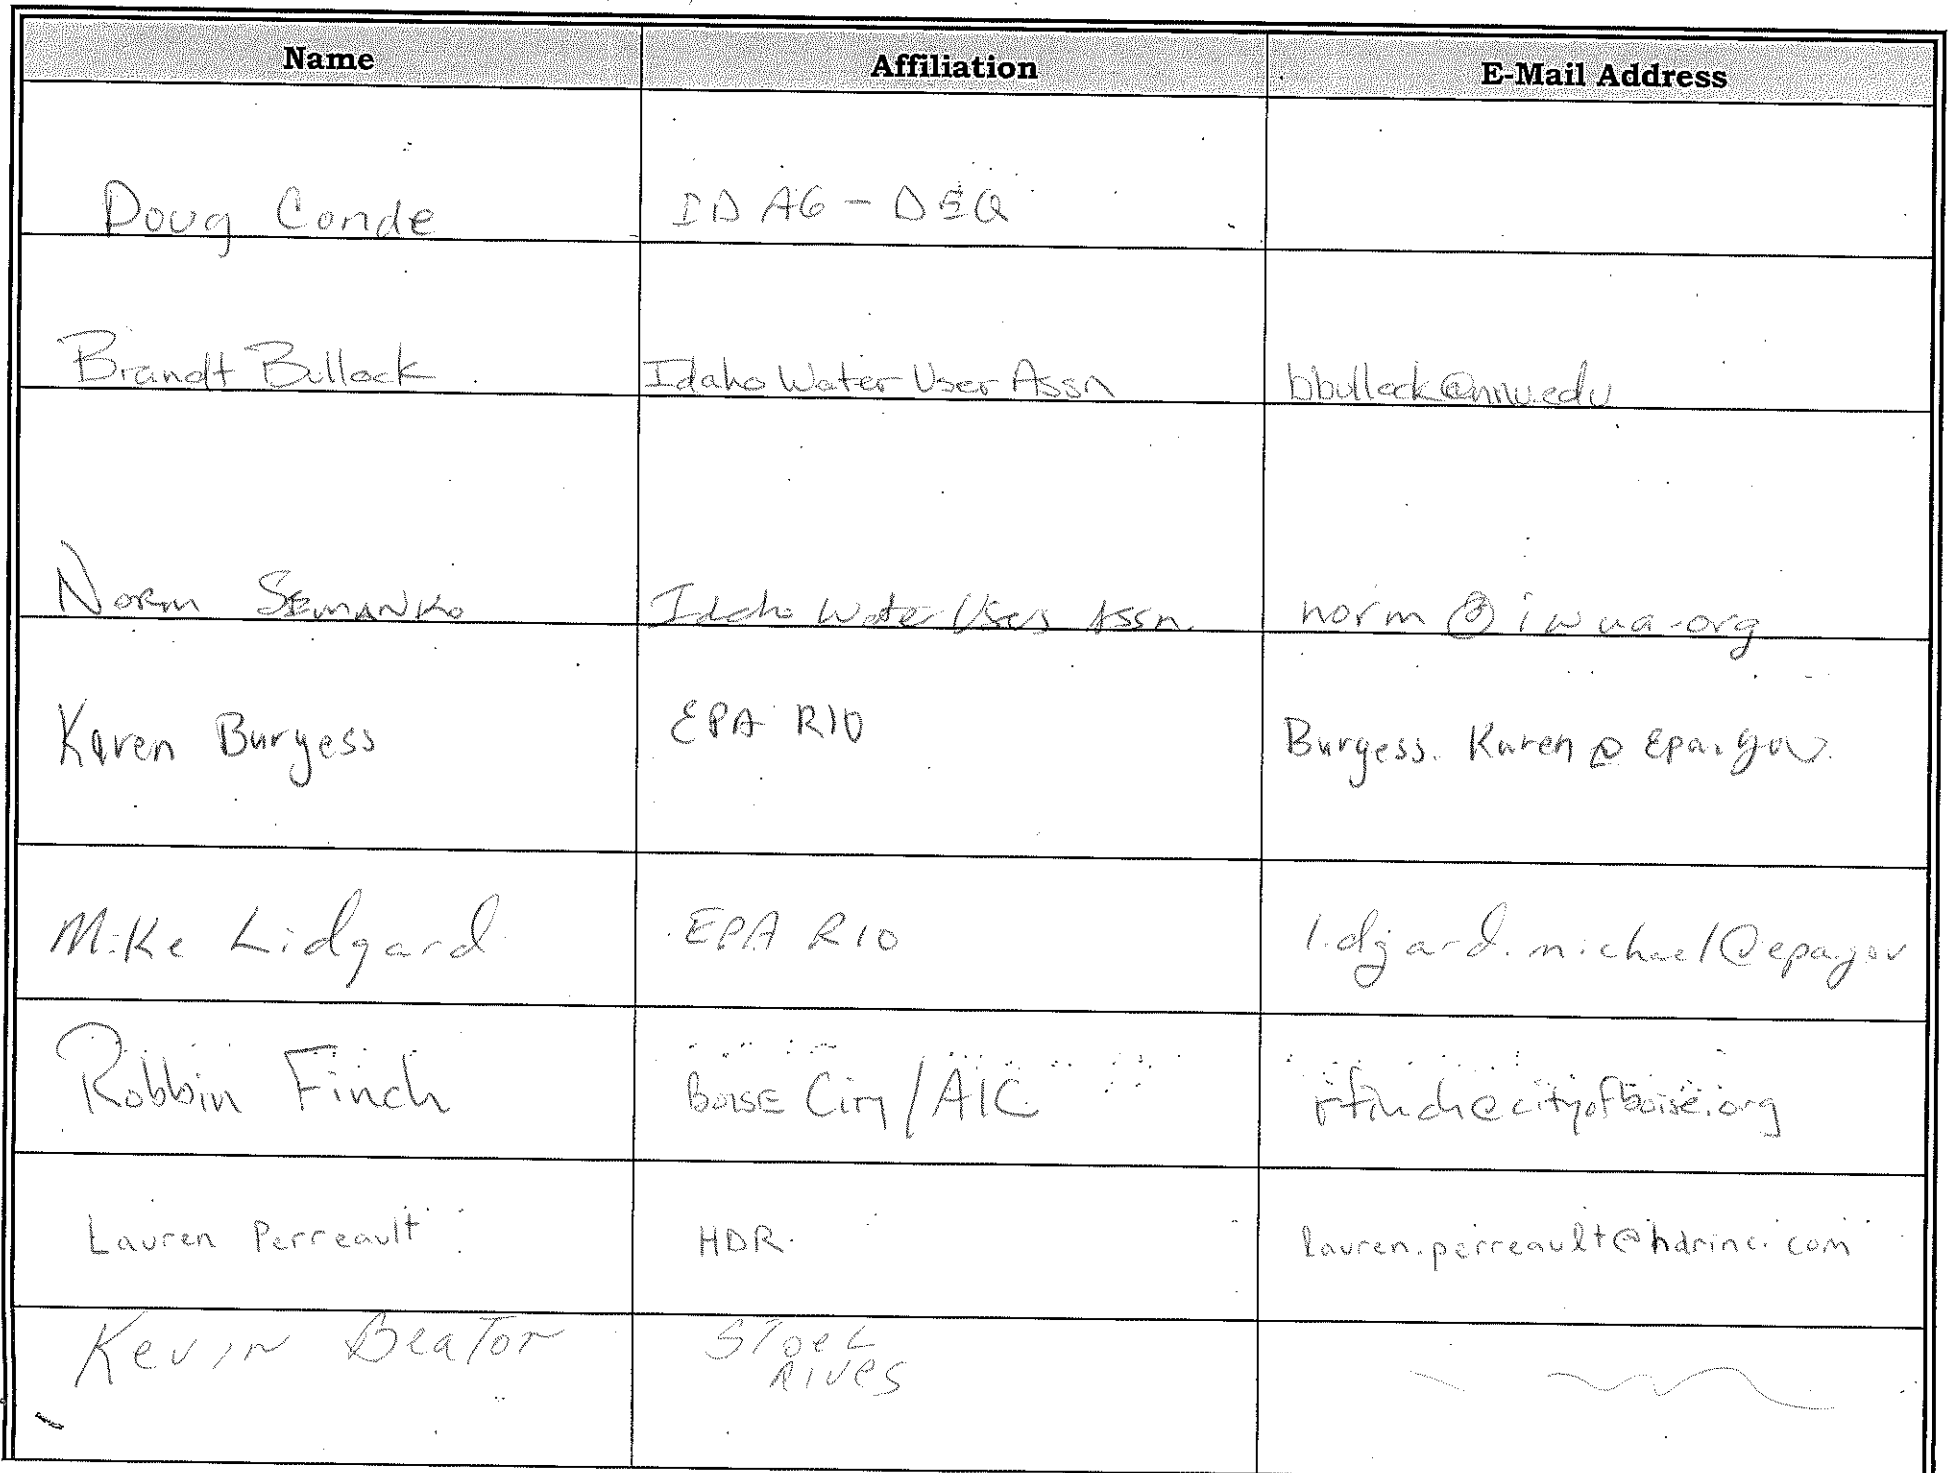 Name Affiliation E-Mail Address
Doug Conde ID AG - DEQ
Brandt Bullock Idaho Water User Assn bbullock@nnu.edu
Norm Semanko Idaho Water Users Assn norm@iwua.org
Karen Burgess EPA R10 Burgess.Karen@Epa.gov
Mike Lidgard EPA R10 lidgard.michael@epa.gov
Robbin Finch Boise City/AIC rfinch@cityofboise.org
Lauren Perreault HDR lauren.perreault@hdrinc.com
Kevin Beaton Stoel
Rives